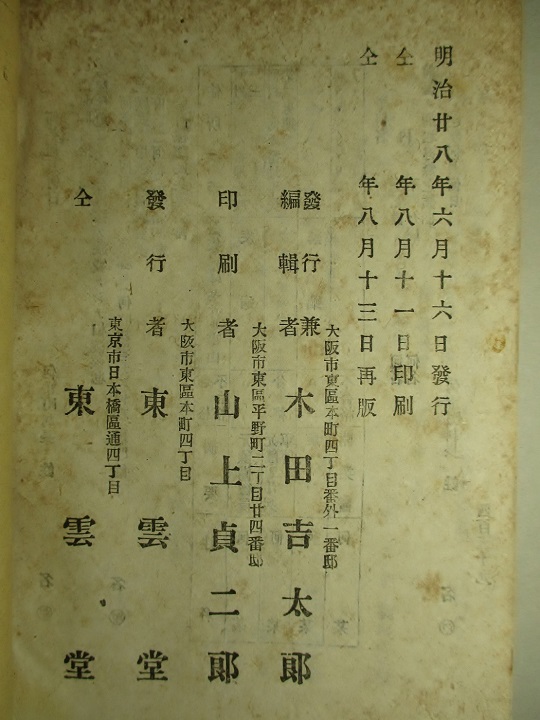 明治廿八年六月十六日發行
仝年八月十一日印刷
仝年八月十三日再版
大阪市東區本町四丁目番外一番邸
發行兼編輯者 木田吉太郎
大阪市東區平野町二丁目廿四番邸
印刷者 山上貞二郎
大阪市東區本町四丁目
發行者 東雲堂
東京市日本橋區通四丁目
仝 東雲堂